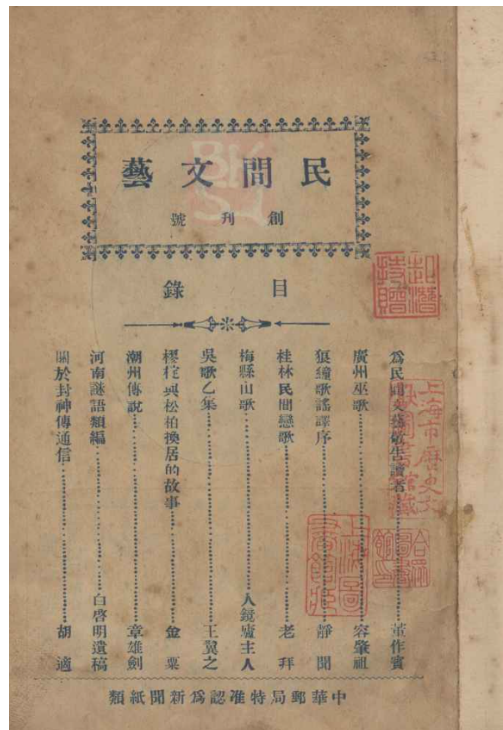 民間文藝
創刊號
目錄
為民間文藝敬告讀者 董作賓
廣州巫歌 容肇祖
狼獞歌謠譯序 靜聞
桂林民間戀歌 老拜
梅縣山歌 人鏡廬主人
吳歌乙集 王翼之
樱桩與松柏換居的故事 金粟
潮州傳說 章雄劍
河南謎語類編 白啓明遺稿
關於封神傳通信 胡適
中華郵局特准認為新聞紙類